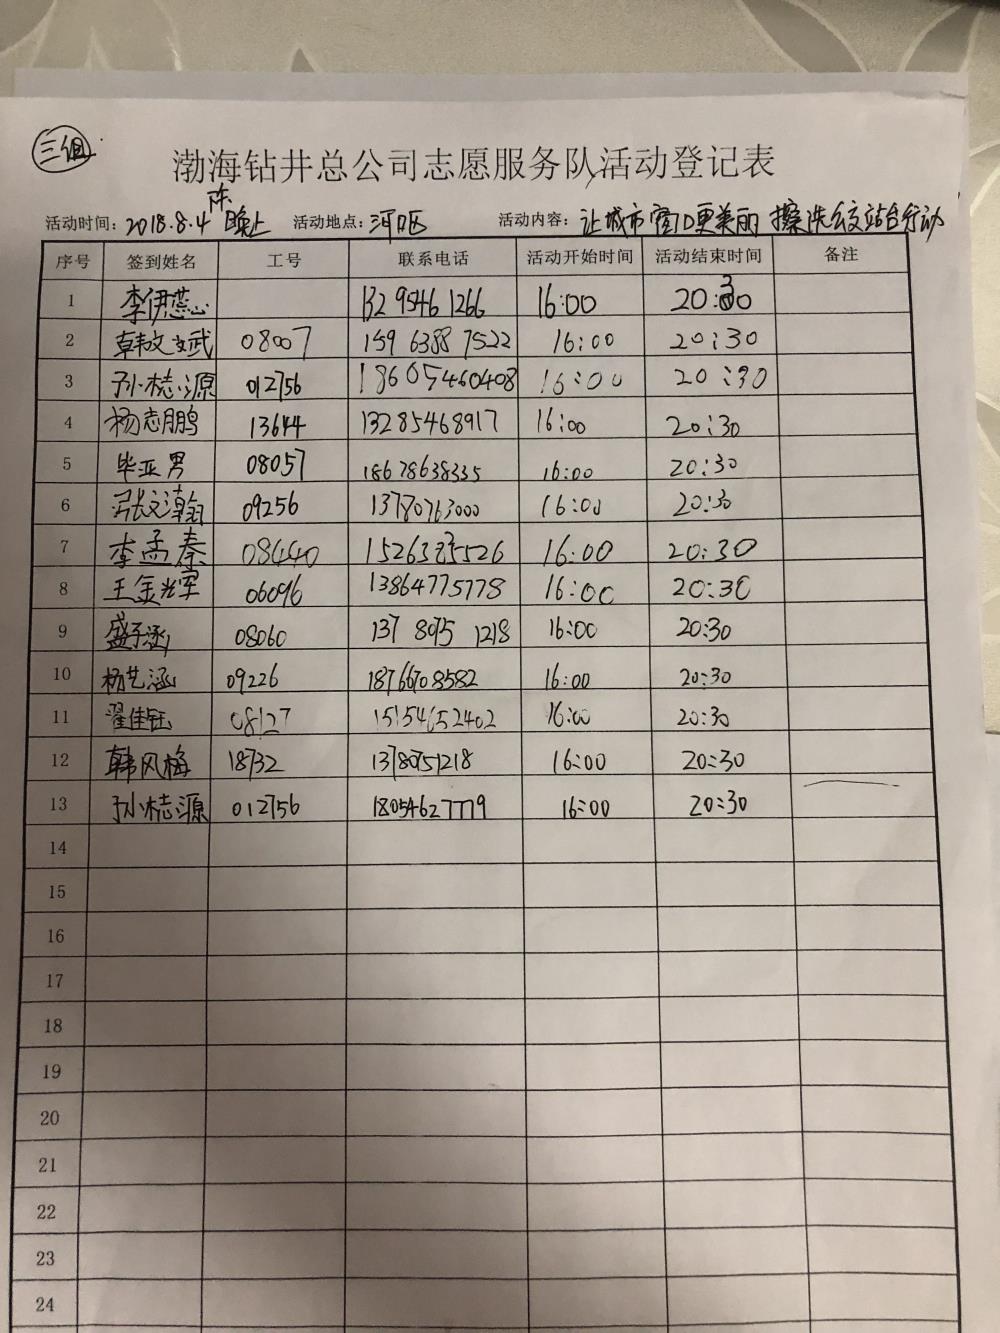 三组
渤海钻井总公司志愿服务队活动登记表
活动时间: 2018.8.4 晚上 活动地点: 河口区 活动内容: 让城市窗口更美丽 擦洗公交站台行动
序号 签到姓名 工号 联系电话 活动开始时间 活动结束时间 备注
1 李伊蕊 132 9546 1266 16:00 20:30
2 韩文武 08007 159 6388 7522 16:00 20:30
3 孙梽源 012756 18605460408 16:00 20:30
4 杨志鹏 13644 13285468917 16:00 20:30
5 毕亚男 08057 18678638335 16:00 20:30
6 张文瀚 09256 13780763000 16:00 20:30
7 李孟秦 08440 16:00 20:30
8 王金辉 06096 13864775778 16:00 20:30
9 盛子涵 08060 137 8075 1218 16:00 20:30
10 杨艺涵 09226 18766708582 16:00 20:30
11 翟佳钰 08127 15154652402 16:00 20:30
12 韩风梅 18732 13780751218 16:00 20:30
13 孙梽源 012756 18054627779 16:00 20:30
14
15
16
17
18
19
20
21
22
23
24